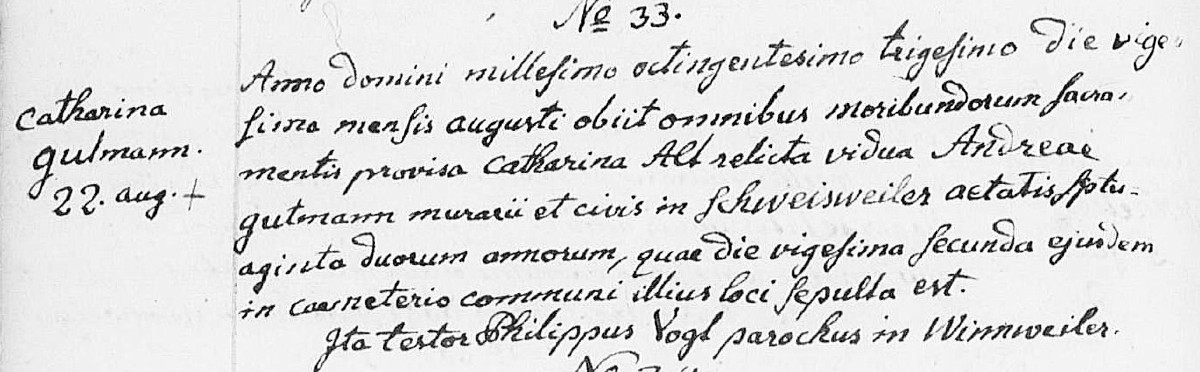 No 33.
Catharina
gutmann.
22. aug. +
Anno domini millesimo octingentesimo trigesimo die vige-
sima mensis augusti obiit omnibus moribundorum sacra-
mentis provisa Catharina Alt relicta vidua Andreae
gutmann murarii et civis in Schweisweiler aetatis septu-
aginta duorum annorum, quae die vigesima secunda ejusdem
in coemeterio communi illius loci sepulta est.
Ita testor Philippus Vogt parochus in Winnweiler.